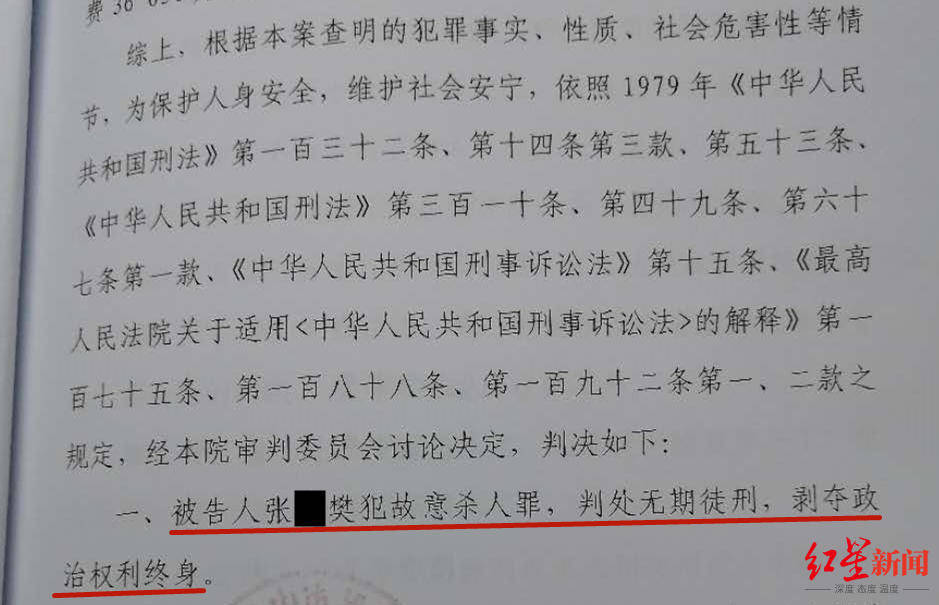 费 36
综上，根据本案查明的犯罪事实、性质、社会危害性等情
节，为保护人身安全，维护社会安宁，依照 1979 年《中华人民
共和国刑法》第一百三十二条、第十四条第三款、第五十三条、
《中华人民共和国刑法》第三百一十条、第四十九条、第六十
七条第一款、《中华人民共和国刑事诉讼法》第十五条、《最高
人民法院关于适用<中华人民共和国刑事诉讼法>的解释》第一
百七十五条、第一百八十八条、第一百九十二条第一、二款之
规定，经本院审判委员会讨论决定，判决如下：
一、被告人张 樊犯故意杀人罪，判处无期徒刑，剥夺政
治权利终身。
红星新闻
深度 态度 温度